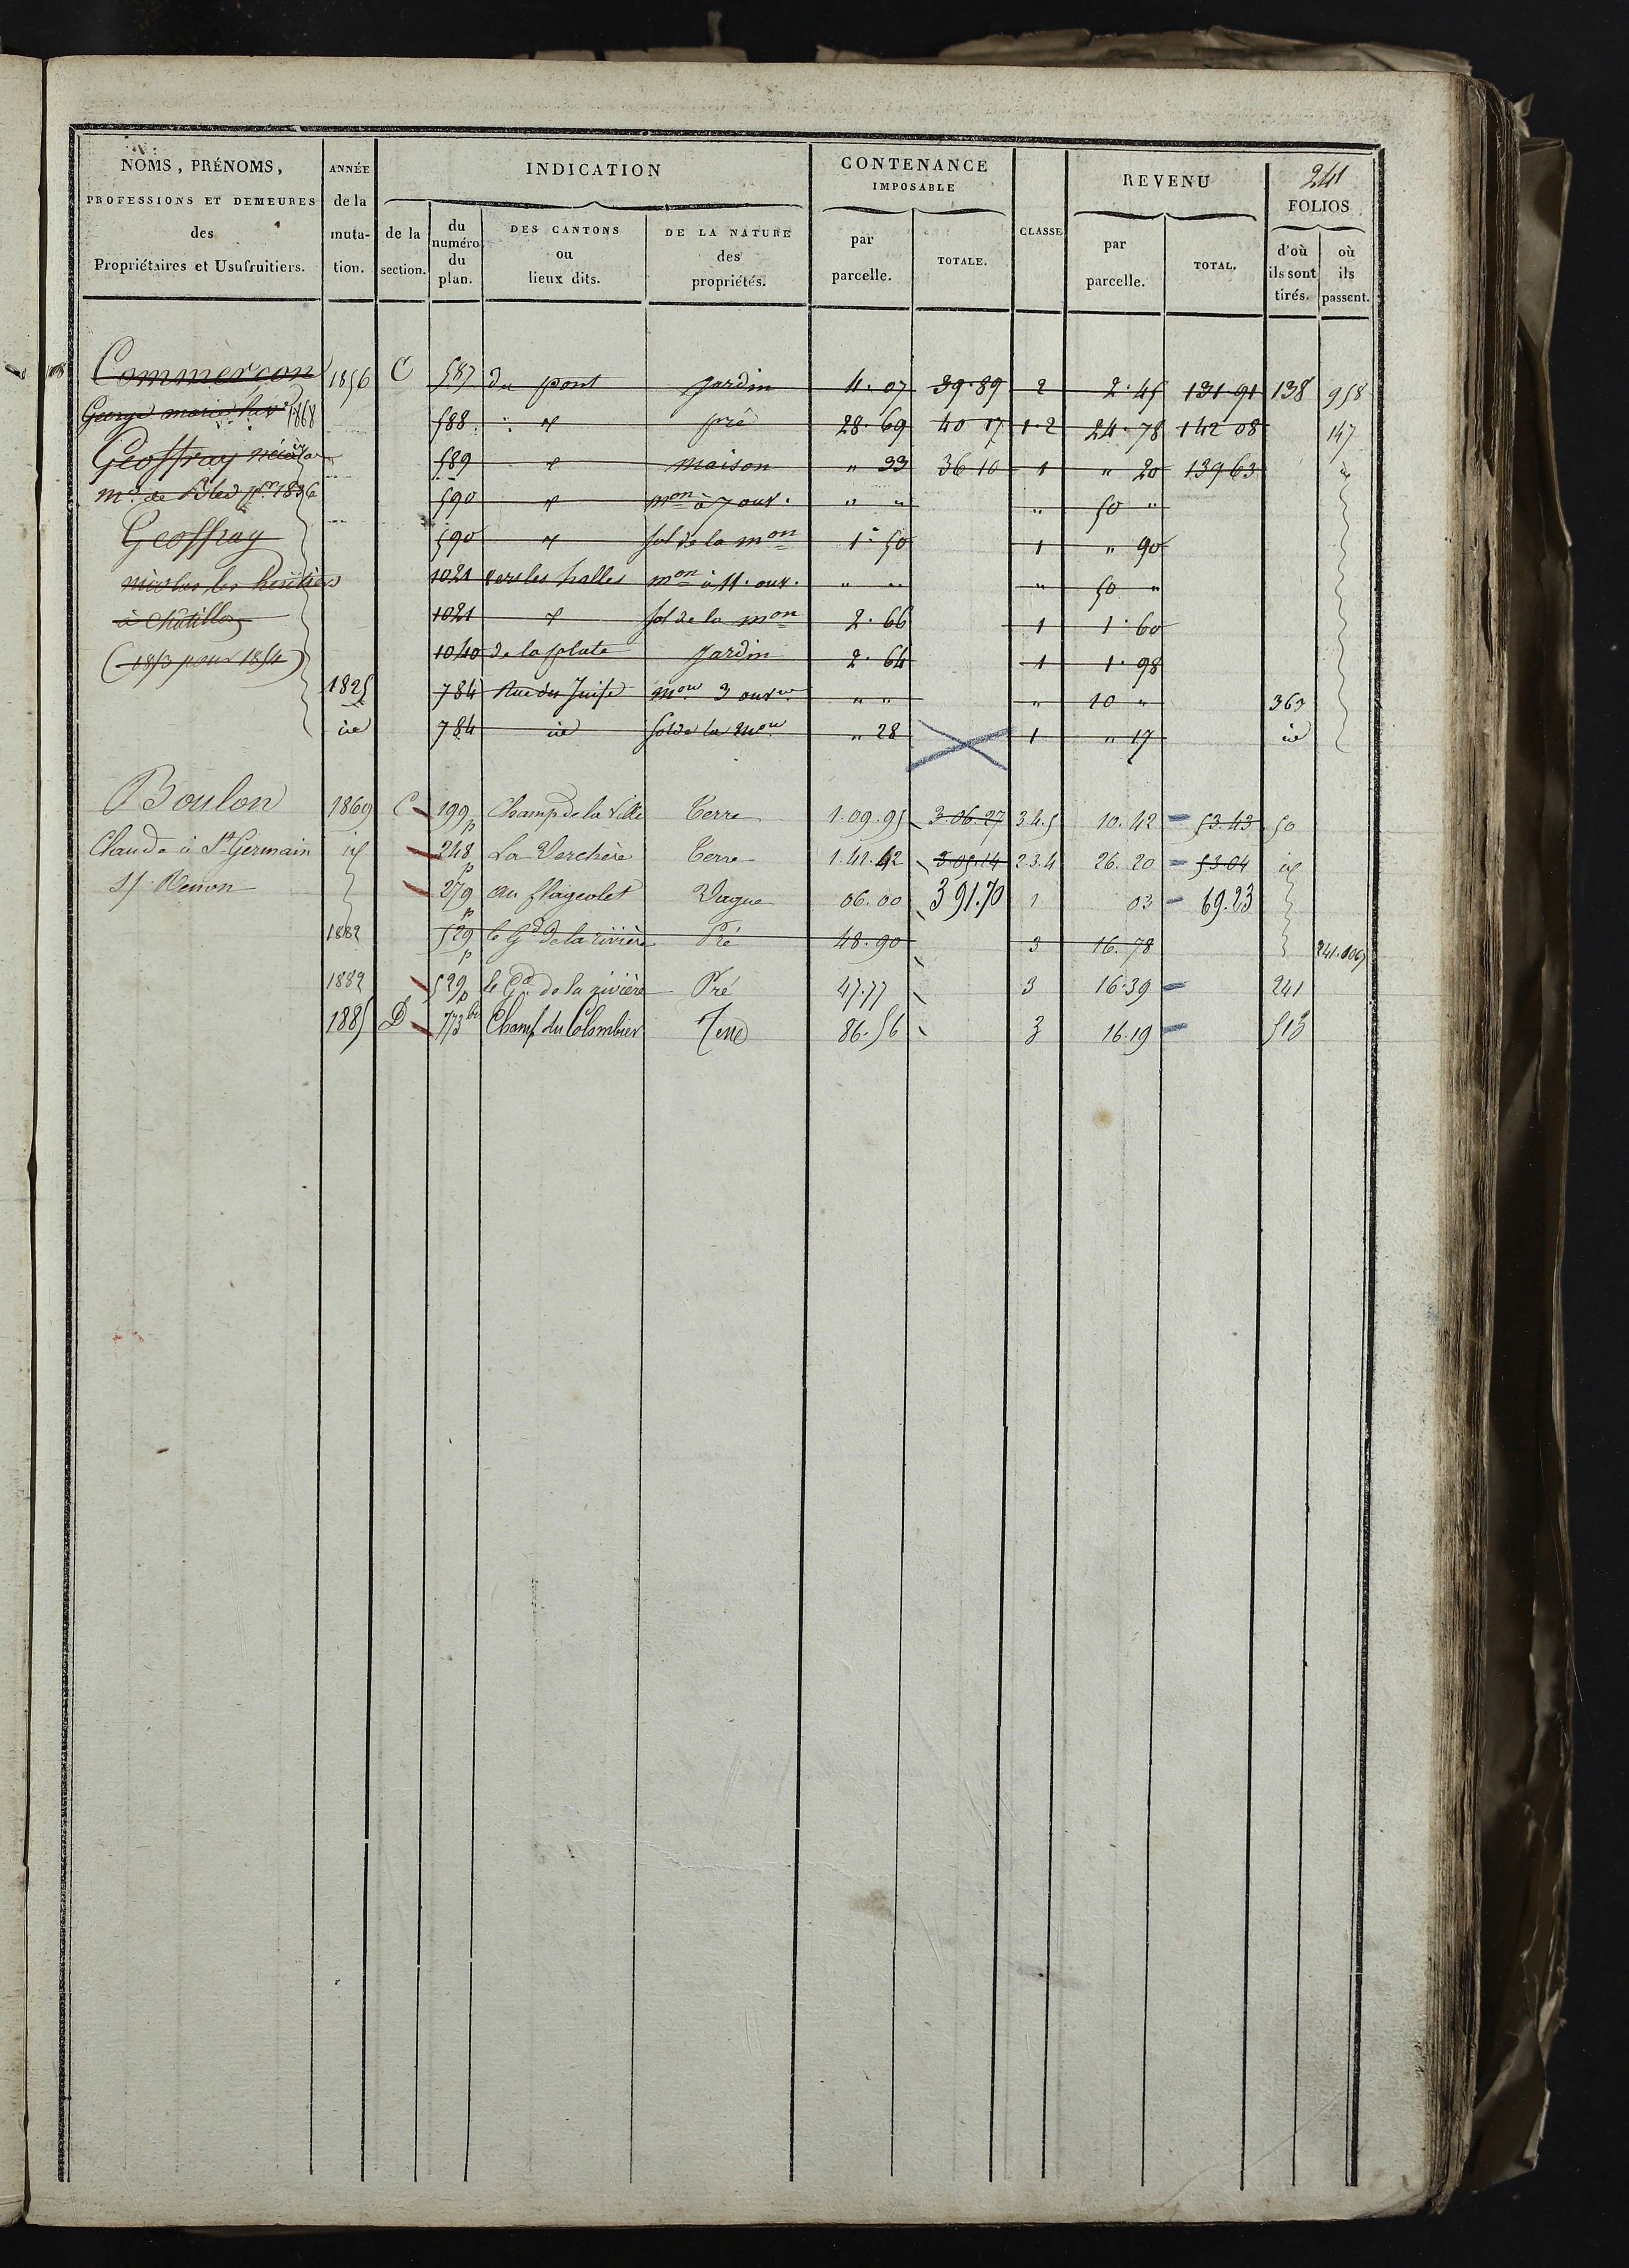 241
NOMS, PRÉNOMS, PROFESSIONS ET DEMEURES des Propriétaires et Usufruitiers.
ANNÉE de la muta-tion.
INDICATION
de la section.
du numéro du plan.
DES CANTONS ou lieux dits.
DE LA NATURE des propriétés.
CONTENANCE IMPOSABLE
par parcelle.
TOTALE.
CLASSE
REVENU
par parcelle.
TOTAL.
FOLIOS
d'où ils sont tirés.
où ils passent.
Commercon 1856 C 587 du pont Jardin 4.07 39.89 2 2.45 131.91 138 958
George marie 1868 588 " pré 28.69 40 17 1.2 24.78 142 08 147
Geoffray 589 " maison " 33 36 10 1 " 20 139 63 id
md de Bled pr 1836 590 " mon à 7 ouv. " " " 50 "
Geoffray 590 " sol de la mon 1.50 1 " 90
nicolas les héritiers 1021 vers les halles mon à 11. ouv. " " " 50 "
à Chatillon 1021 " sol de la mon 2.66 1 1.60
(1853 pour 1854) 1040 de la plate Jardin 2.64 1 1.98
1825 784 Rue des Juifs mon 3 ouvres " " " 10 " 363
id 784 id sol de la mon " 28 1 " 17 id
Boulon 1869 C 199p Champ de la Ville Terre 1.09.95 3.06.27 3.4.5 10.42 53.43 50
Claude à St Germain id 248p La Verchère Terre 1.42.42 3.05.14 2.3.4 26.20 53.04 id
s/ Renon 279p au flageolet Vague 06.00 391.70 1 03 69.23
1882 529p le Gd de la rivière Pré 48.90 3 16.78 241.
1882 529p le Gd de la rivière Pré 47.77 3 16.39 241
1885 D 773bis Champ du Colombier Terre 86.56 3 16.19 513